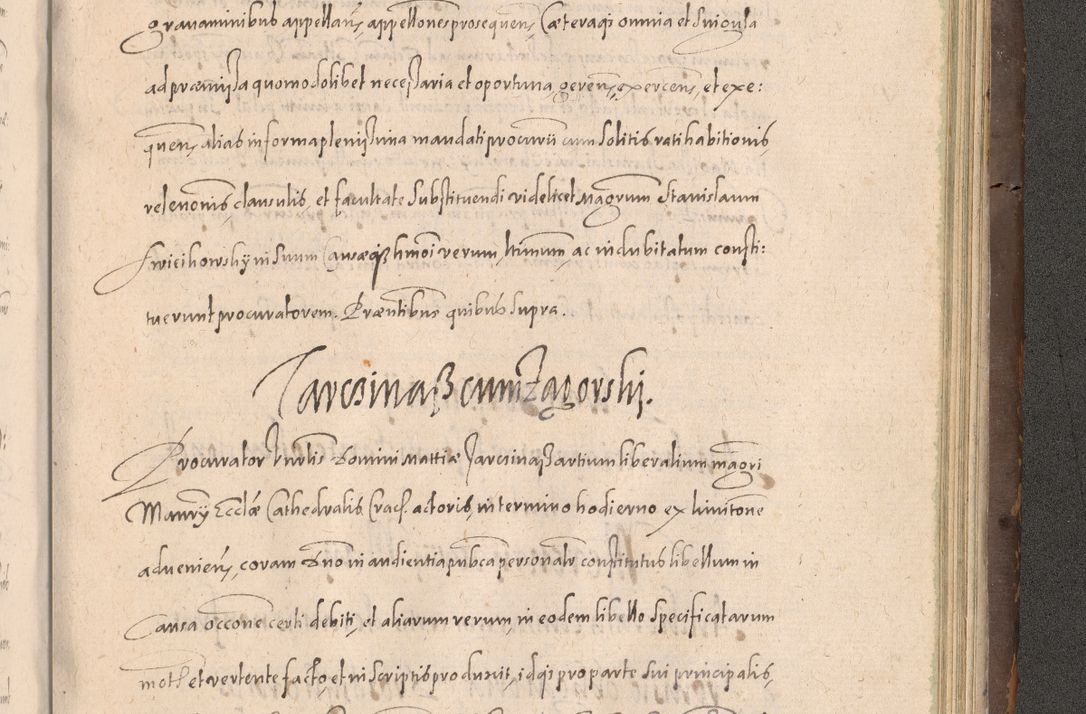 gravaminibus appellan, appellones prosequen, Cæteraq omnia et singula
ad præmissa quomodolibet necessaria et oportuna gerens, exercens, et exe:
quens, alias in forma plenissima mandati procurii cum solitis ratihabitionis,
relenonis, clausulis, et facultate substituendi videlicet Magrum Stanislaum
Swiechowsky in suum Causæ qß hmoi verum, ltimum, ac indubitatum consti:
tuerunt procuratorem. Præntibus quibus supra.
Jarczinaß cum Zagorski.
Procurator hnrlis Domini Mattiæ Jarczinaß artium liberalium magri
Manry Ecclæ Cathedralis Crac. actoris, in termino hodierno ex limitone
advenien, coram Dno in audientia publica personalr constitutus libellum in
Causa occone certi debiti, et aliarum rerum, in eodem libello specificatarum
mot et vertente facto et in scriptis produxit, idq pro parte sui principalis,